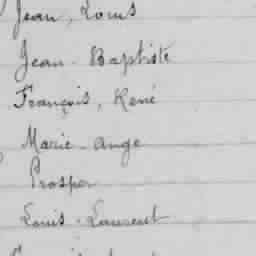 Jean, Louis
Jean - Baptiste
François, René
Marie - Ange
Prosper
Louis - Laurent